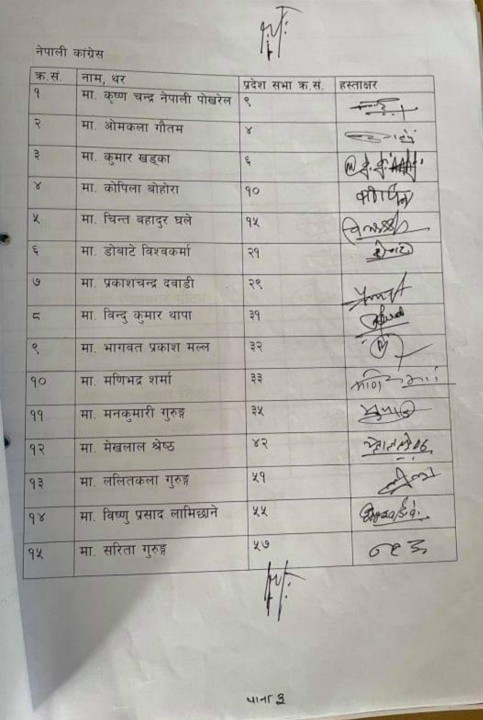 नेपाली कांग्रेस
क्र.सं. नाम, थर प्रदेश सभा क्र.सं. हस्ताक्षर
१ मा. कृष्ण चन्द्र नेपाली पोखरेल ९
२ मा. ओमकला गौतम ४
३ मा. कुमार खड्का ६
४ मा. कोपिला बोहोरा १०
५ मा. चिन्त बहादुर घले १५
६ मा. डोबाटे विश्वकर्मा २१
७ मा. प्रकाशचन्द्र दवाडी २९
८ मा. विन्दु कुमार थापा ३१
९ मा. भागवत प्रकाश मल्ल ३२
१० मा. मणिभद्र शर्मा ३३
११ मा. मनकुमारी गुरुङ्ग ३५
१२ मा. मेखलाल श्रेष्ठ ४२
१३ मा. ललितकला गुरुङ्ग ५१
१४ मा. विष्णु प्रसाद लामिछाने ५५
१५ मा. सरिता गुरुङ्ग ५७
पाना 3